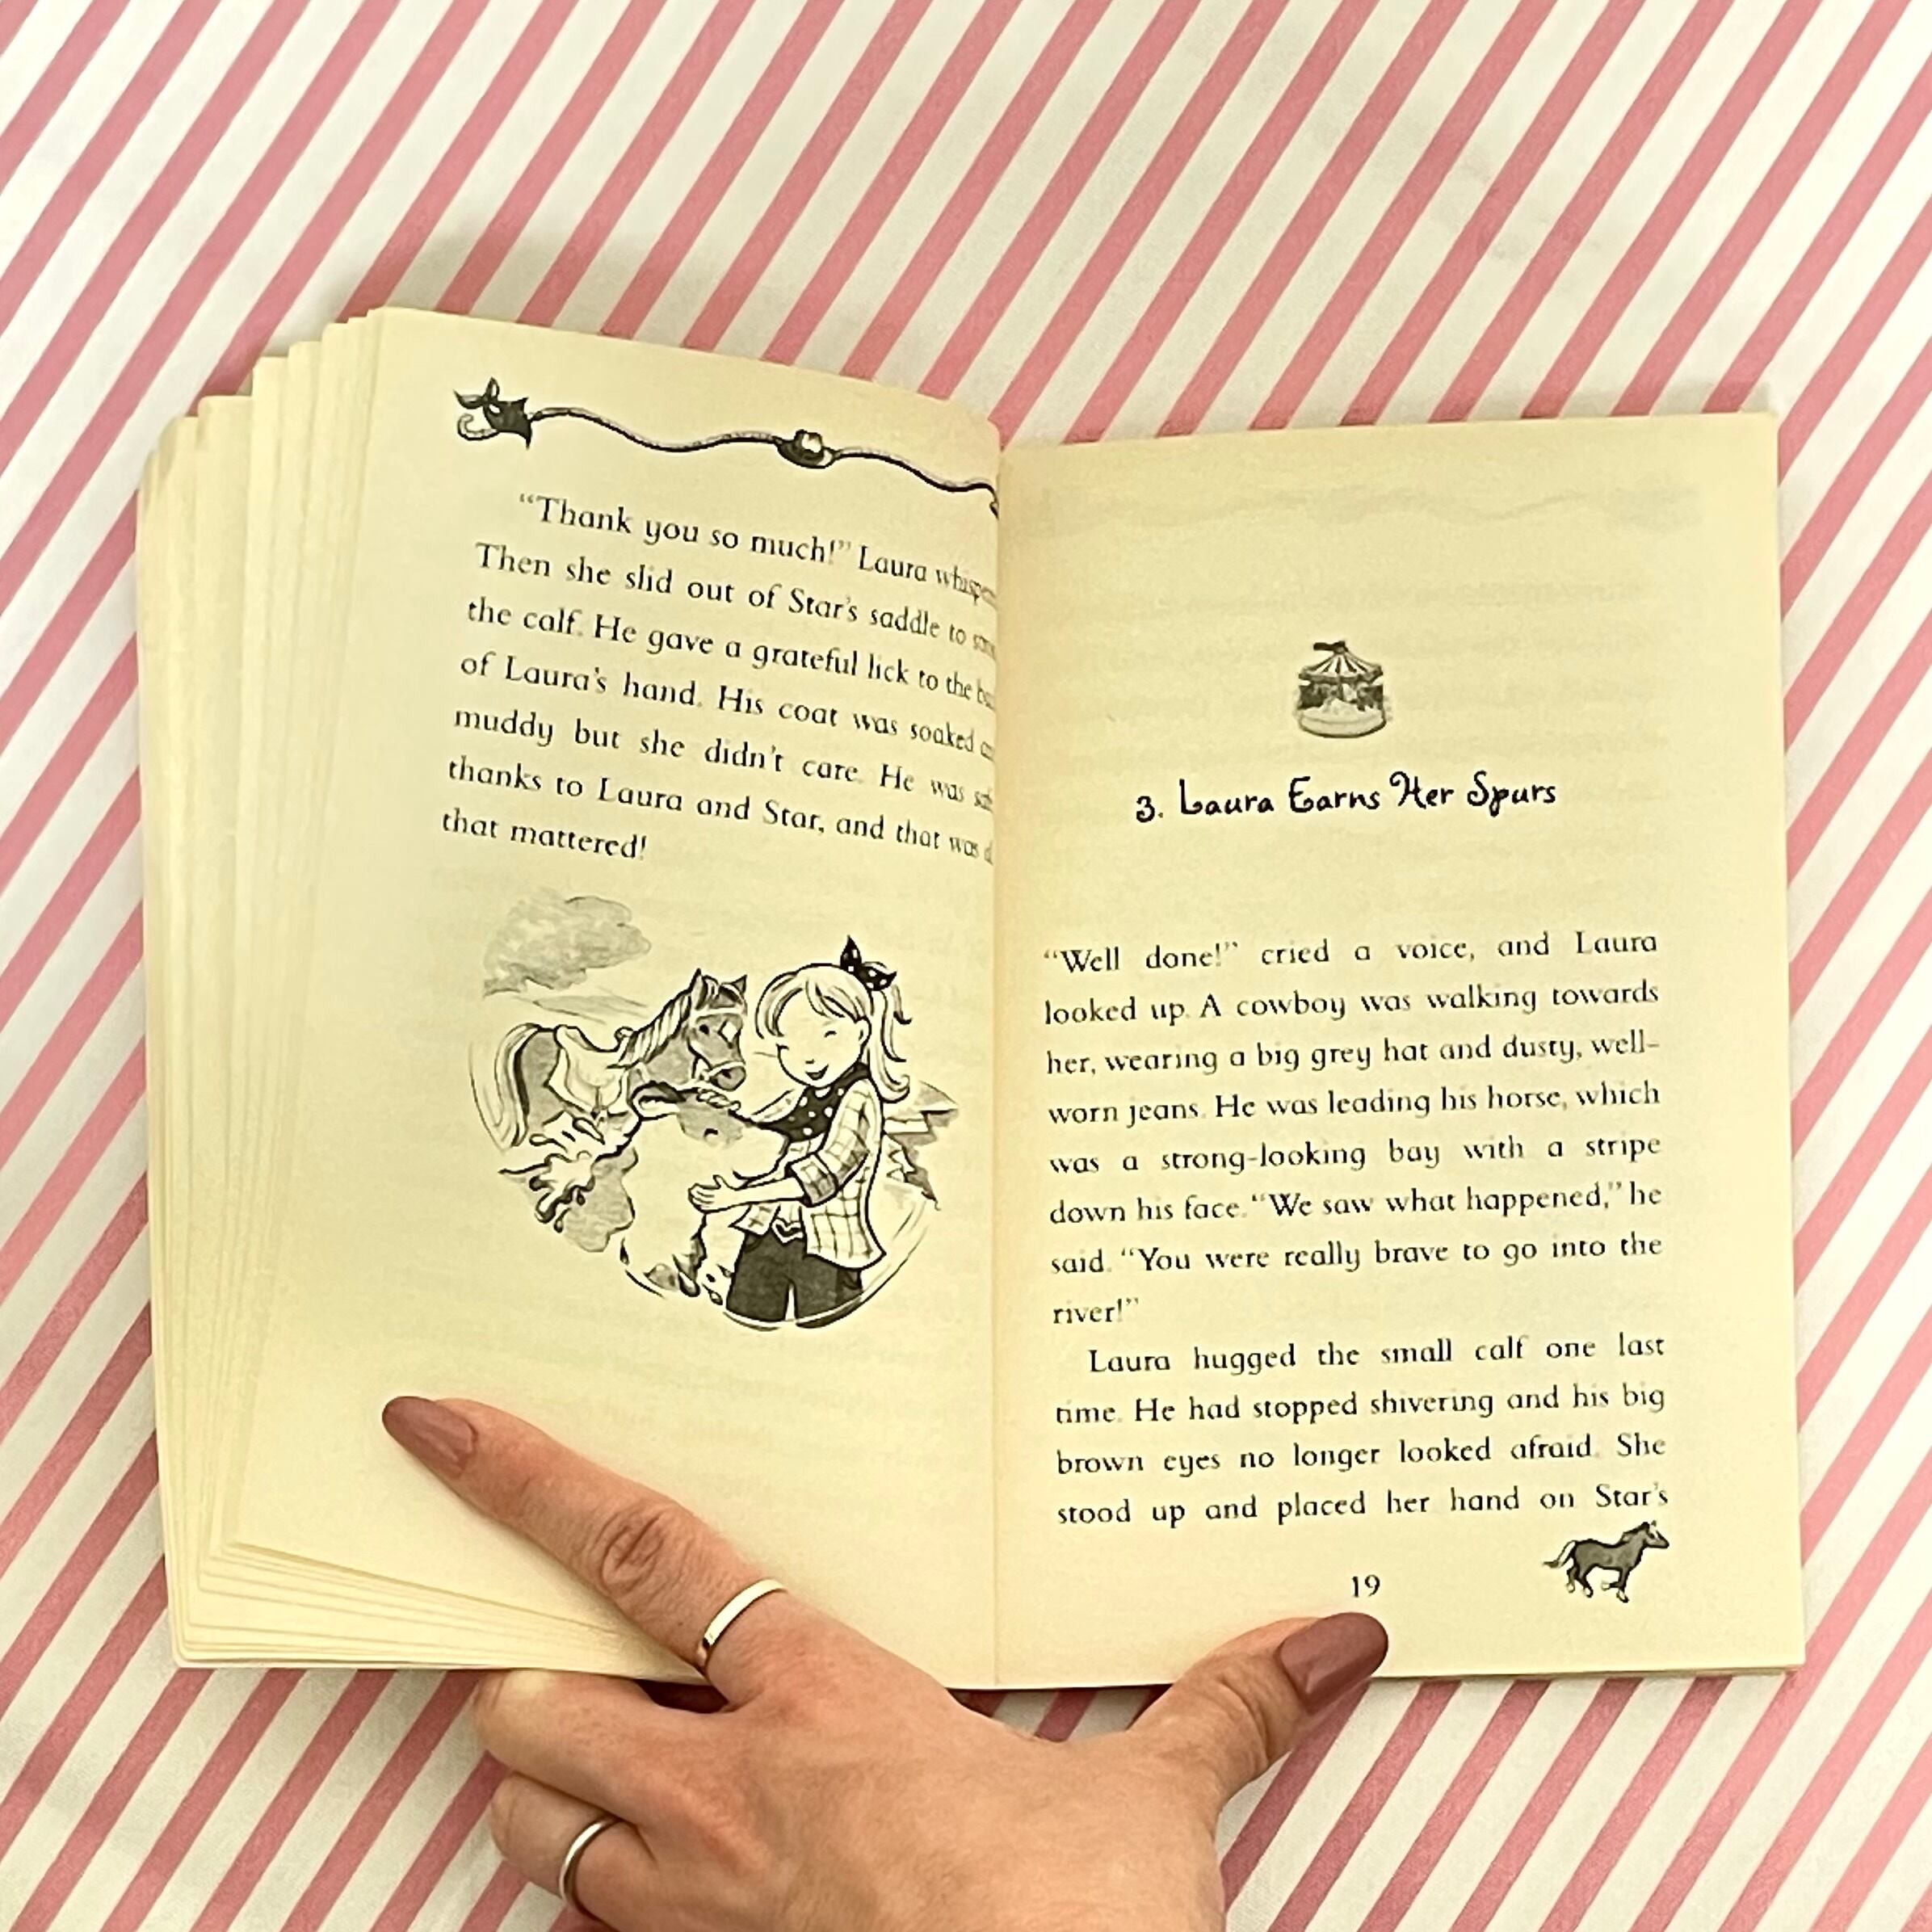 “Thank you so much!” Laura
Then she slid out of Star’s saddle to
the calf. He gave a grateful lick to the
of Laura’s hand. His coat was soaked
muddy but she didn’t care. He was
thanks to Laura and Star, and that was
that mattered!
3. Laura Earns Her Spurs
“Well done!” cried a voice, and Laura
looked up. A cowboy was walking towards
her, wearing a big grey hat and dusty, well-
worn jeans. He was leading his horse, which
was a strong-looking bay with a stripe
down his face. “We saw what happened,” he
said. “You were really brave to go into the
river!”
Laura hugged the small calf one last
time. He had stopped shivering and his big
brown eyes no longer looked afraid. She
stood up and placed her hand on Star’s
19